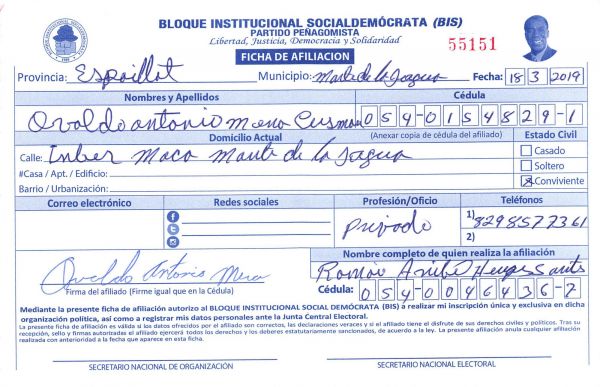 BLOQUE INSTITUCIONAL SOCIALDEMÓCRATA (BIS)
PARTIDO PEÑAGOMISTA
Libertad, Justicia, Democracia y Solidaridad
FICHA DE AFILIACION
55151
Provincia: Espaillat Municipio: Monte de la Jagua Fecha: 18 3 2019
Nombres y Apellidos Cédula
Ovaldo antonio Mena Cusman 054-0154829-1
Domicilio Actual (Anexar copia de cédula del afiliado) Estado Civil
Calle: Inber Moca Monte de la Jagua
Casado
#Casa / Apt. / Edificio:
Soltero
Barrio / Urbanización:
Conviviente
Correo electrónico Redes sociales Profesión/Oficio Teléfonos
privado
1) 8298577361
2)
Nombre completo de quien realiza la afiliación
Ovaldo Antonio Mena
Ramón
Firma del afiliado (Firme igual que en la Cédula)
Cédula: 054-0046436-7
Mediante la presente ficha de afiliación autorizo al BLOQUE INSTITUCIONAL SOCIAL DEMÓCRATA (BIS) a realizar mi inscripción única y exclusiva en dicha
organización política, así como a registrar mis datos personales ante la Junta Central Electoral.
La presente ficha de afiliación es válida si los datos ofrecidos por el afiliado son correctos, las declaraciones veraces y si el afiliado tiene el disfrute de sus derechos civiles y políticos. Tras su
recepción, sello y firmas autorizadas el afiliado ejercerá todos los derechos y los deberes estatutariamente sancionados, de acuerdo a la ley. La presente afiliación anula cualquier afiliación
realizada con anterioridad a la fecha que aparece en esta ficha.
SECRETARIO NACIONAL DE ORGANIZACIÓN
SECRETARIO NACIONAL ELECTORAL